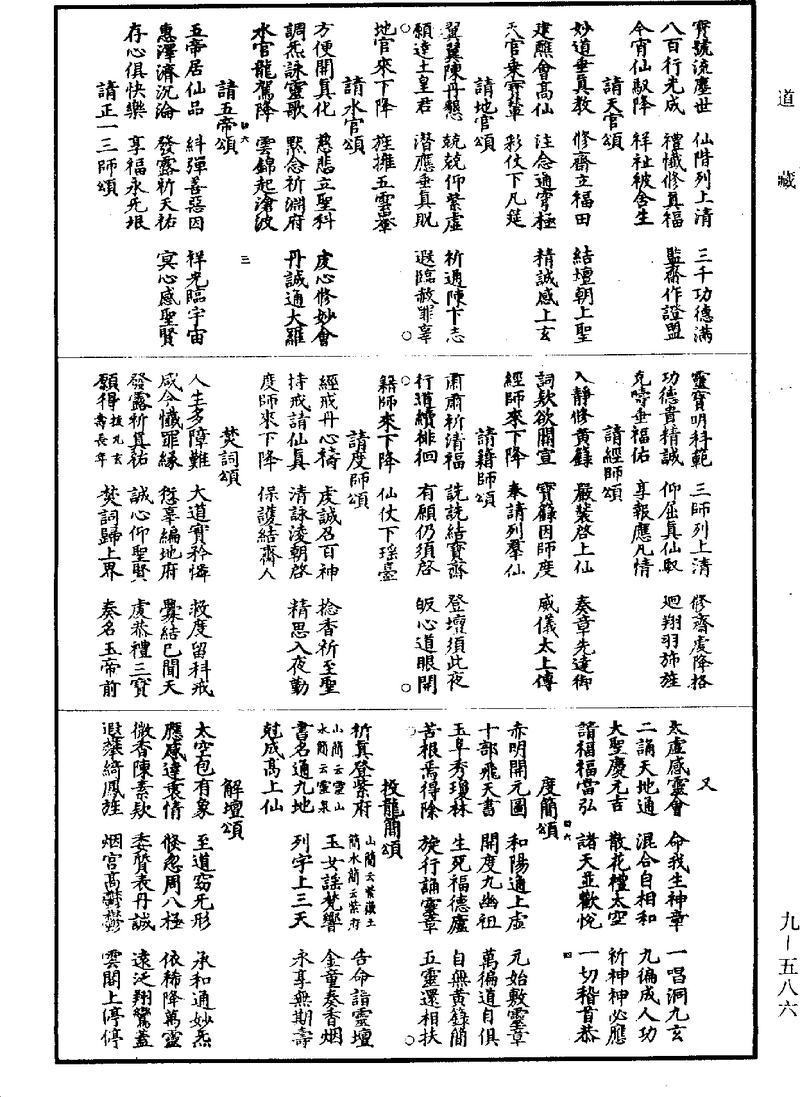 道藏
寶號流塵世　仙階列上清　三千功德滿
八百行光成　禮懺修真福　監齋作證盟
今宵仙馭降　祥祉被含生
請天官頌
妙道垂真教　修齋立福田　結壇朝上聖
建醮會高仙　注念通霄極　精誠感上玄
天官乘寶輦　彩仗下凡筵
請地官頌
翼翼陳丹懇　兢兢仰紫虛　祈通陳下志
願達土皇君　潛應垂真貺　遐臨赦罪辜
地官來下降　旌擁五雲轝
請水官頌
方便開真化　慈悲立聖科　虔心修妙會
調炁詠靈歌　默念祈淵府　丹誠通大羅
水官龍駕降　雲錦起滄波
請五帝頌
四六　三
五帝居仙品　糾彈善惡因　祥光臨宇宙
惠澤濟沉淪　發露祈天祐　冥心感聖賢
存心俱快樂　享福永无垠
請正一三師頌
靈寶明科範　三師列上清　修齋處降格
功德貴精誠　仰屈真仙馭　迴翔羽斾旌
克疇垂福佑　享報應凡情
請經師頌
入靜修黃籙　嚴裝啓上仙　奏章先達御
詞欵欲關宣　寶籙因師度　威儀太上傳
經師來下降　奉請列羣仙
請籍師頌
肅肅祈清福　詵詵結寶齋　登壇須此夜
行道續徘徊　有願仍須啓　皈心道眼開
籍師來下降　仙仗下瑤臺
請度師頌
經戒丹心禱　虔誠召百神　捻香祈至聖
持戒請仙真　清詠淩朝啓　精思入夜勤
度師來下降　保護結齋人
焚詞頌
人生多障難　大道實矜憐　救度留科戒
咸令懺罪緣　愆辜編地府　釁結已聞天
發露祈真祐　誠心仰聖賢　虔恭禮三寶
願得拔九玄壽長年　焚詞歸上界　奏名玉帝前
又
太虛感靈會　命我生神章　一唱洞九玄
二誦天地通　混合自相和　九徧成人功
大聖慶元吉　散花禮太空　祈神神必應
請福福當弘　諸天並歡悅　一切稽首恭
四六　四
度簡頌
赤明開元圖　和陽通上虛　元始敷靈章
十部飛天書　開度九幽祖　萬徧道自俱
玉阜秀瓊林　生死福德廬　自無黃籙簡
苦根焉得除　旋行誦靈章　五靈還相扶
投龍簡頌
祈真登紫府山簡云靈山水簡云靈泉　山簡云紫微土簡水簡云紫府　告命詣靈壇
玉女謡梵響　金童奏香烟
書名通九地　列字上三天　永享無期壽
尅成高上仙
解壇頌
太空包有象　至道窈无形　承和通妙炁
應感達衷情　倐忽周八極　依稀降萬靈
㣲香陳素欵　委贄表丹誠　遠泛翔鸞蓋
遐轝綺鳳旌　烟宮高鬱鬱　雲閣上渟渟
九－五八六